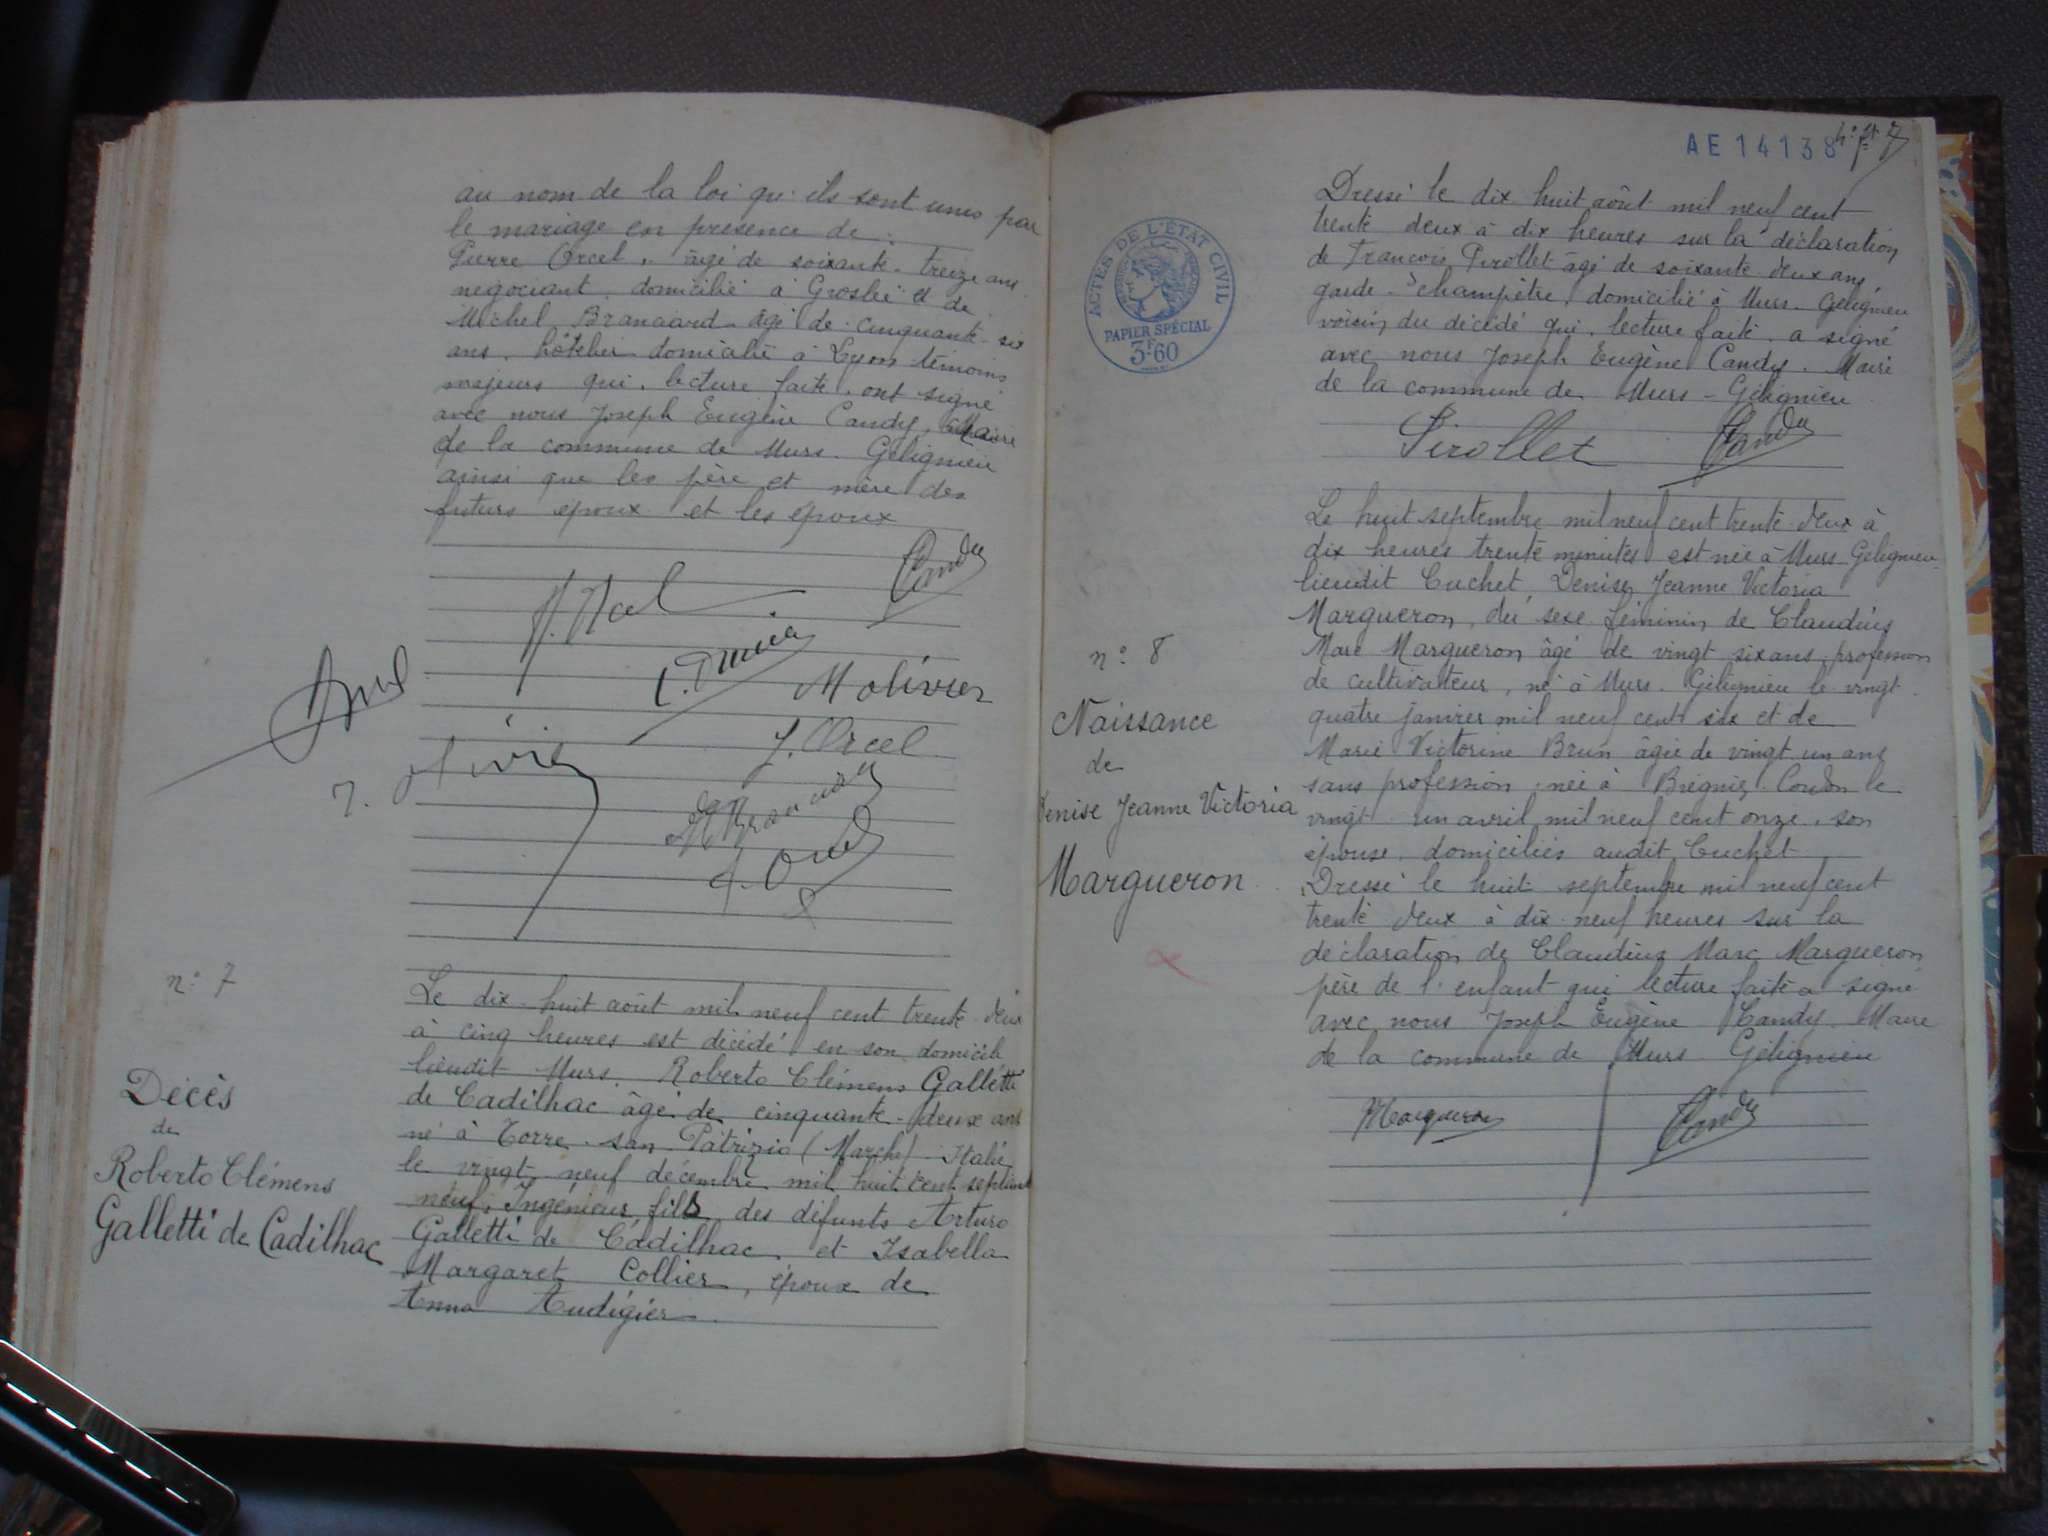 au nom de la loi qu'ils sont unis par
le mariage en présence de :
Pierre Orcel, âgé de soixante-treize ans
négociant, domicilié à Groslée et de
Michel Brancard âgé de cinquante-six
ans, hôtelier domicilié à Lyon témoins
majeurs qui, lecture faite, ont signé
avec nous Joseph Eugène Candy, Maire
de la commune de Murs-Gélignieu
ainsi que les père et mère des
futurs époux et les époux
Candy
M Olivier
J. Orcel
J. Olivier
M Brancard
n° 7
Décès
de
Roberto Clémens
Galletti de Cadilhac
Le dix-huit août mil neuf cent trente-deux
à cinq heures est décédé en son domicile
lieudit Murs, Roberto Clémens Galletti
de Cadilhac âgé de cinquante-deux ans
né à Torre-san Patrizio (Marche) Italie
le vingt neuf décembre mil huit cent septante
neuf, Ingénieur, fils des défunts Arturo
Galletti de Cadilhac et Isabella
Margaret Collier, époux de
Anna Audigier.
AE 14138
ACTES DE L'ÉTAT CIVIL
PAPIER SPÉCIAL
3F.60
Dressé le dix huit août mil neuf cent
trente deux à dix heures sur la déclaration
de François Pirollet âgé de soixante-deux ans,
garde-champêtre, domicilié à Murs-Gélignieu
voisin du décédé qui, lecture faite, a signé
avec nous Joseph Eugène Candy, Maire
de la commune de Murs-Gélignieu
Pirollet Candy
n° 8
Naissance
de
Denise Jeanne Victoria
Margueron
Le huit septembre mil neuf cent trente-deux à
dix heures trente minutes est née à Murs-Gélignieu
lieudit Cuchet, Denise Jeanne Victoria
Margueron, du sexe féminin de Claudius
Marc Margueron âgé de vingt six ans, profession
de cultivateur, né à Murs-Gélignieu le vingt
quatre janvier mil neuf cent six et de
Marie Victorine Brun âgée de vingt un ans
sans profession, née à Brégnier-Cordon le
vingt un avril mil neuf cent onze, son
épouse, domiciliés audit Cuchet
Dressé le huit septembre mil neuf cent
trente deux à dix-neuf heures sur la
déclaration de Claudius Marc Margueron
père de l'enfant qui lecture faite a signé
avec nous Joseph Eugène Candy Maire
de la commune de Murs-Gélignieu
Margueron Candy